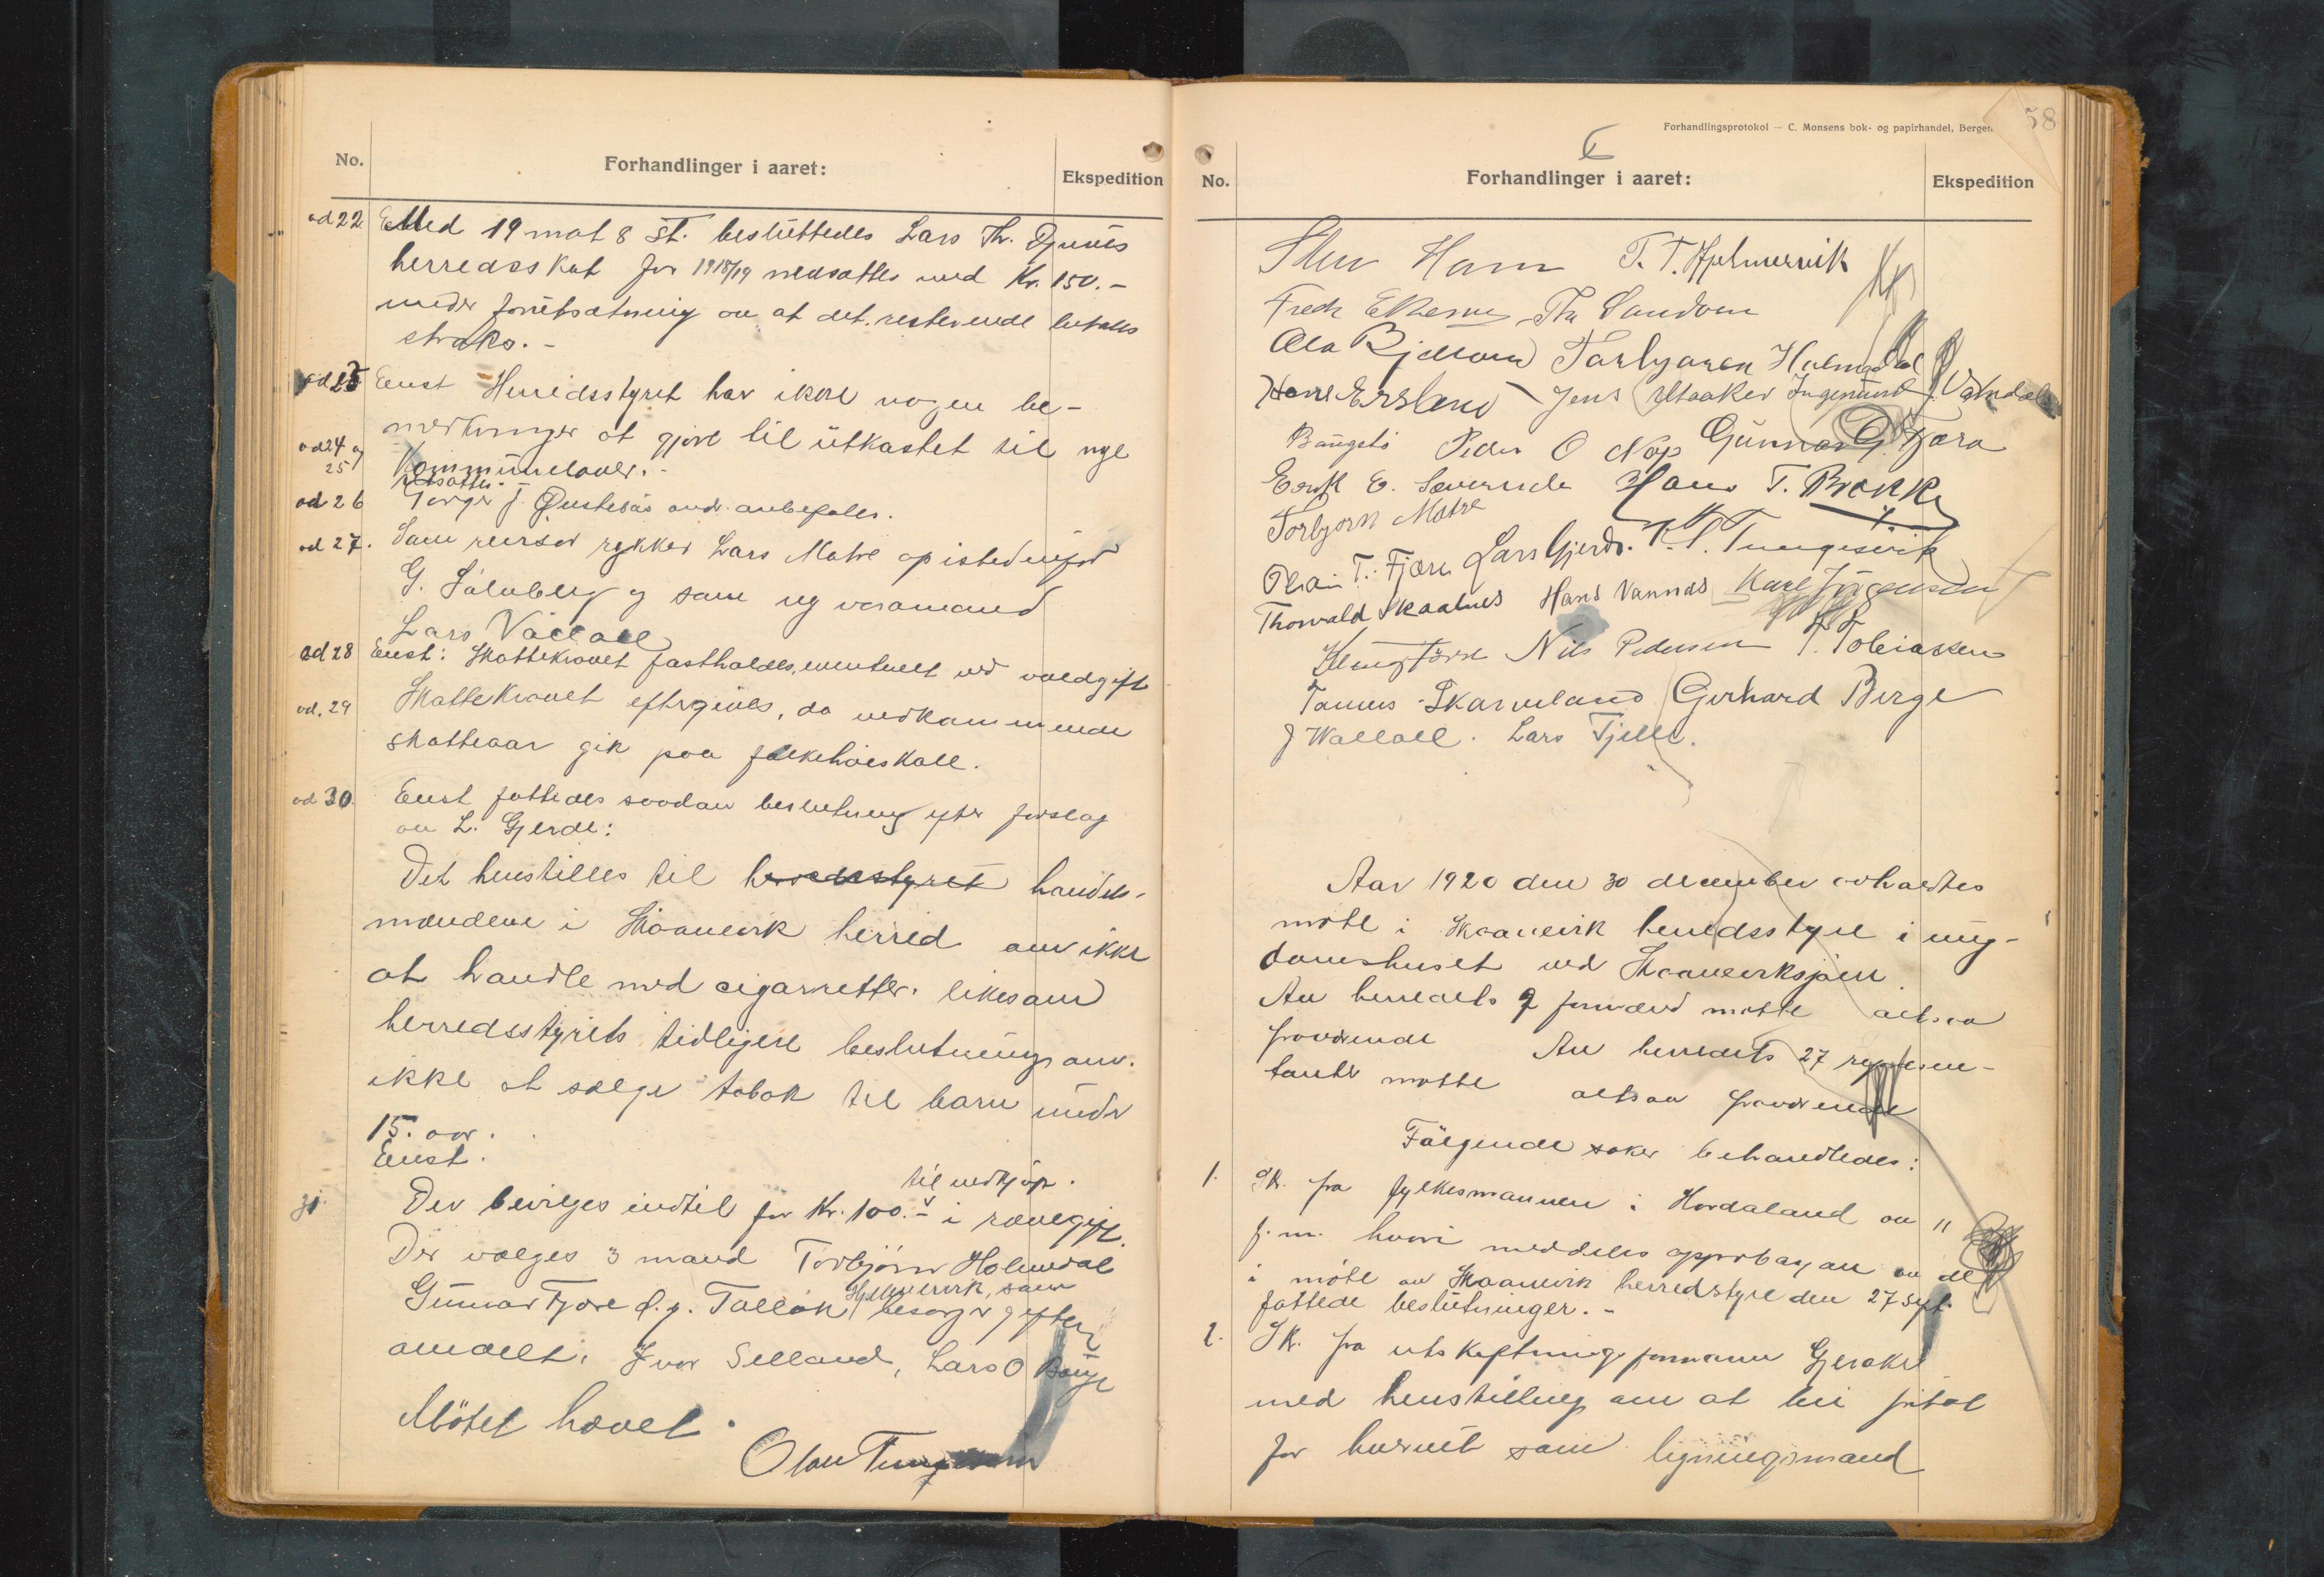 No.
Forhandlinger i aaret:
Ekspedition
ad 22 Med 19 mot 8 st. besluttedes Lars Th. Djuvés
herredsskat for 1918/19 nedsattes med Kr. 150.-
under forutsætning av at det resterende betales
straks.-
ad 23 Enst Herredsstyret har ikke nogen be-
merkninger at gjøre til utkastet til nye
ad 24 og 25 Kommunelover.-
utsattes.
ad 26 Torger J. Østebøs andr. anbefales.
ad 27. Som revisor rykker Lars Matre op istedenfor
G. Sølvberg og som ny varamand
Lars Vallall
ad 28 Enst: Skattekravet fastholdes, eventuelt ved voldgift
ad. 29 Skattekravet eftergives, da vedkommende
skatteaar gik paa folkehøiskole.
ad 30. Enst fattedes saadan beslutning efter forslag
av L. Gjerde:
Det henstilles til herredsstyret handels-
mændene i Skaanevik herred om ikke
at handle med cigarretter. likesom
herredsstyrets tidligere beslutning om.
ikke at sælge tobak til barn under
15. aar.
Enst.
til indkjøp.
31. Der bevilges indtil for Kr. 100.- i rævegift.
Der vælges 3 mand Torbjørn Holmedal
Hjelmervik, som
Gunnar Fjære d.y. Tallak besørger giften
anvendt. Ivar Selland, Lars O Bauge
Møtet hævet.
Olav Tungesvik
Forhandlingsprotokol — C. Monsens bok- og papirhandel, Bergen
58
No.
Forhandlinger i aaret:
Ekspedition
Sten Ham T. T. Hjelmervik
Fredr Ekherne Th Sandven
Ola Bjelland Torbjørn Holmedal
Hans Ersland Jens Utaaker Ingemund J. Vatndal
Baugstø Peder O Nap Gunnar G. Fjæra
Enok E. Sævereide Hans T. Brekke
Torbjørn Matre
T. Fjære Lars Gjerde. Tungesvik
Thorvald Skaalnes Hans Vannes Karl Jørgensen
Nils Pedersen T. Tobiassen
Tomas Skarveland Gerhard Berge
J Wallall. Lars Fjelle.
Aar 1920 den 30 december avholdtes
møte i Skaanevik herredsstyre i ung-
domshuset ved Skaaneviksjøen
Av herredets 9 formænd møtte altsaa
fraværende Av herredets 27 represen-
tanter møtte altsaa fraværende
Følgende saker behandledes:
1. Sk. fra fylkesmannen i Hordaland av 11
f.m. hvori meddeles approbasjon av de
i møte av Skaanevik herredstyre den 27 sept.
fattede beslutninger.-
2. Sk. fra utskiftningsformann Gjerake
med henstilling om at bli fritat
for hvervet som ligningsmand